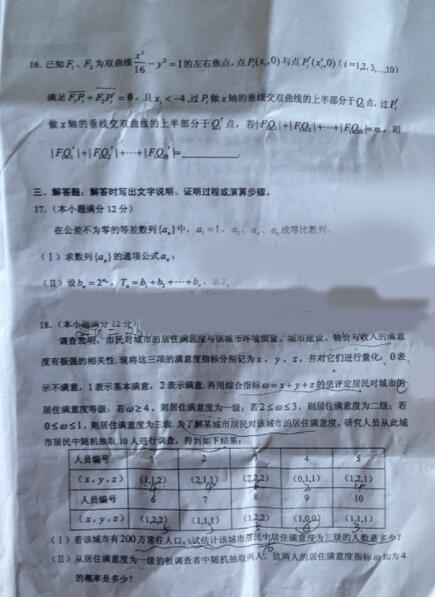 16. 已知F₁、F₂为双曲线x²/16 - y² = 1的左右焦点, 点Pᵢ(xᵢ,0)与点Pᵢ′(xᵢ′,0)(i=1,2,3,...,10)
满足 + = 0, 且xᵢ<-4, 过Pᵢ做x轴的垂线交双曲线的上半部分于Qᵢ点, 过Pᵢ′
做x轴的垂线交双曲线的上半部分于Qᵢ′点, 若|F₁Q₁|+|F₁Q₂|+···+|F₁Q₁₀|=m, 则
|F₁Q₁′|+|F₁Q₂′|+···+|F₁Q₁₀′|=________.
三、解答题: 解答时写出文字说明、证明过程或演算步骤。
17. (本小题满分12分)
在公差不为零的等差数列{aₙ}中, a₁=1, 成等比数列.
(Ⅰ) 求数列{aₙ}的通项公式aₙ;
(Ⅱ) 设bₙ=2^aₙ, Tₙ=b₁+b₂+···+bₙ, 求Tₙ.
18. (本小题满分12分)
调查表明, 市民对城市的居住满意度与该城市环境质量、城市建设、物价与收入的满意
度有极强的相关性. 现将这三项的满意度指标分别记为x、y、z, 并对它们进行量化: 0表
示不满意, 1表示基本满意, 2表示满意. 再用综合指标ω=x+y+z的值评定居民对城市的
居住满意度等级: 若ω≥4, 则居住满意度为一级; 若2≤ω≤3, 则居住满意度为二级; 若
0≤ω≤1, 则居住满意度为三级. 为了解某城市居民对该城市的居住满意度, 研究人员从此城
市居民中随机抽取10人进行调查, 得到如下结果:
人员编号 1 2 3 4 5
(x, y, z) (1,1,2) (2,1,1) (2,2,2) (0,1,1) (1,2,1)
人员编号 6 7 8 9 10
(x, y, z) (1,2,2) (1,1,1) (1,2,2) (1,0,0) (1,1,1)
(Ⅰ) 若该城市有200万常住人口, 试估计该城市居民中居住满意度为三级的人数是多少?
(Ⅱ) 从居住满意度为一级的被调查者中随机抽取两人, 这两人的居住满意度指标ω均为4
的概率是多少?